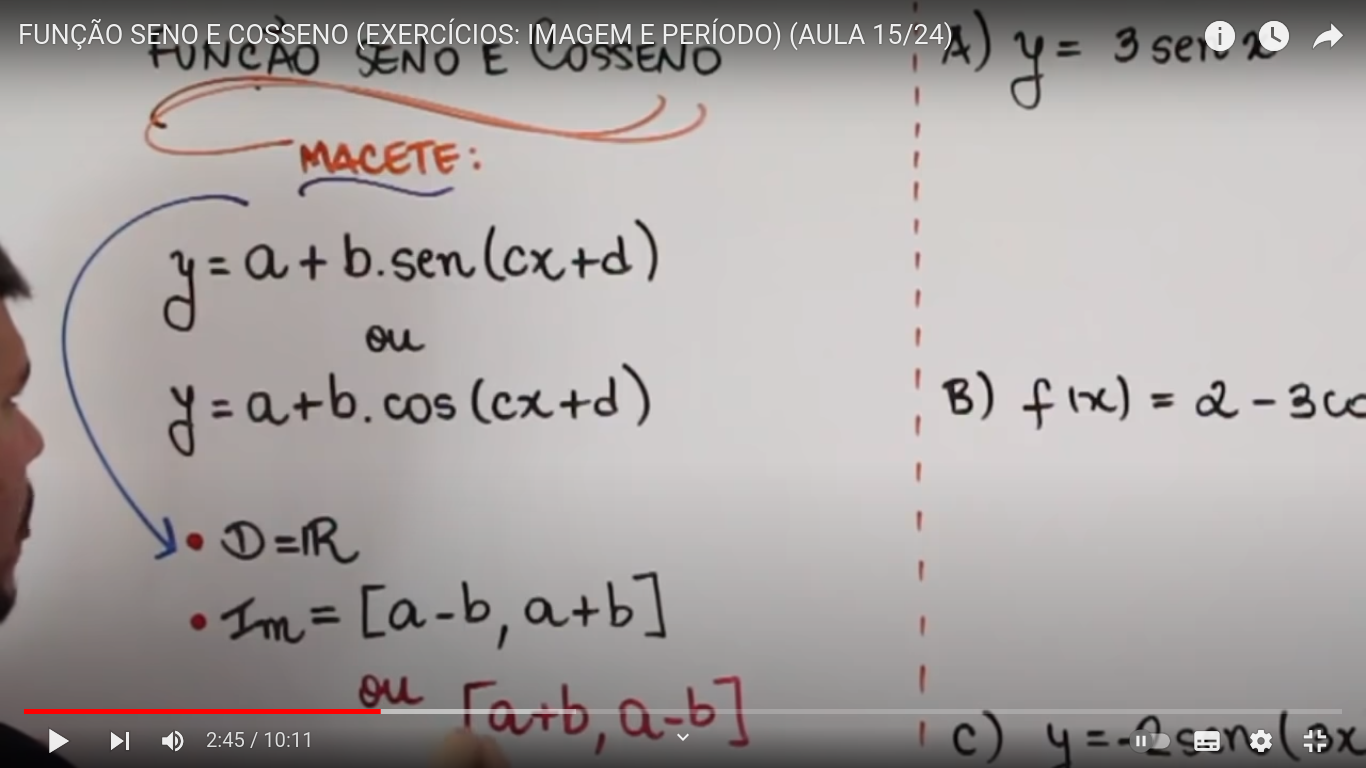 FUNÇÃO SENO E COSSENO (EXERCÍCIOS: IMAGEM E PERÍODO) (AULA 15/24)
FUNÇÃO SENO E COSSENO
MACETE:
y = a + b.sen(cx+d)
ou
y = a+b.cos(cx+d)
• D=ℝ
• Im = [a-b, a+b]
ou [a+b, a-b]
A) y = 3 sen x
B) f(x) = 2 - 3co
C) y = -2sen(
2:45 / 10:11